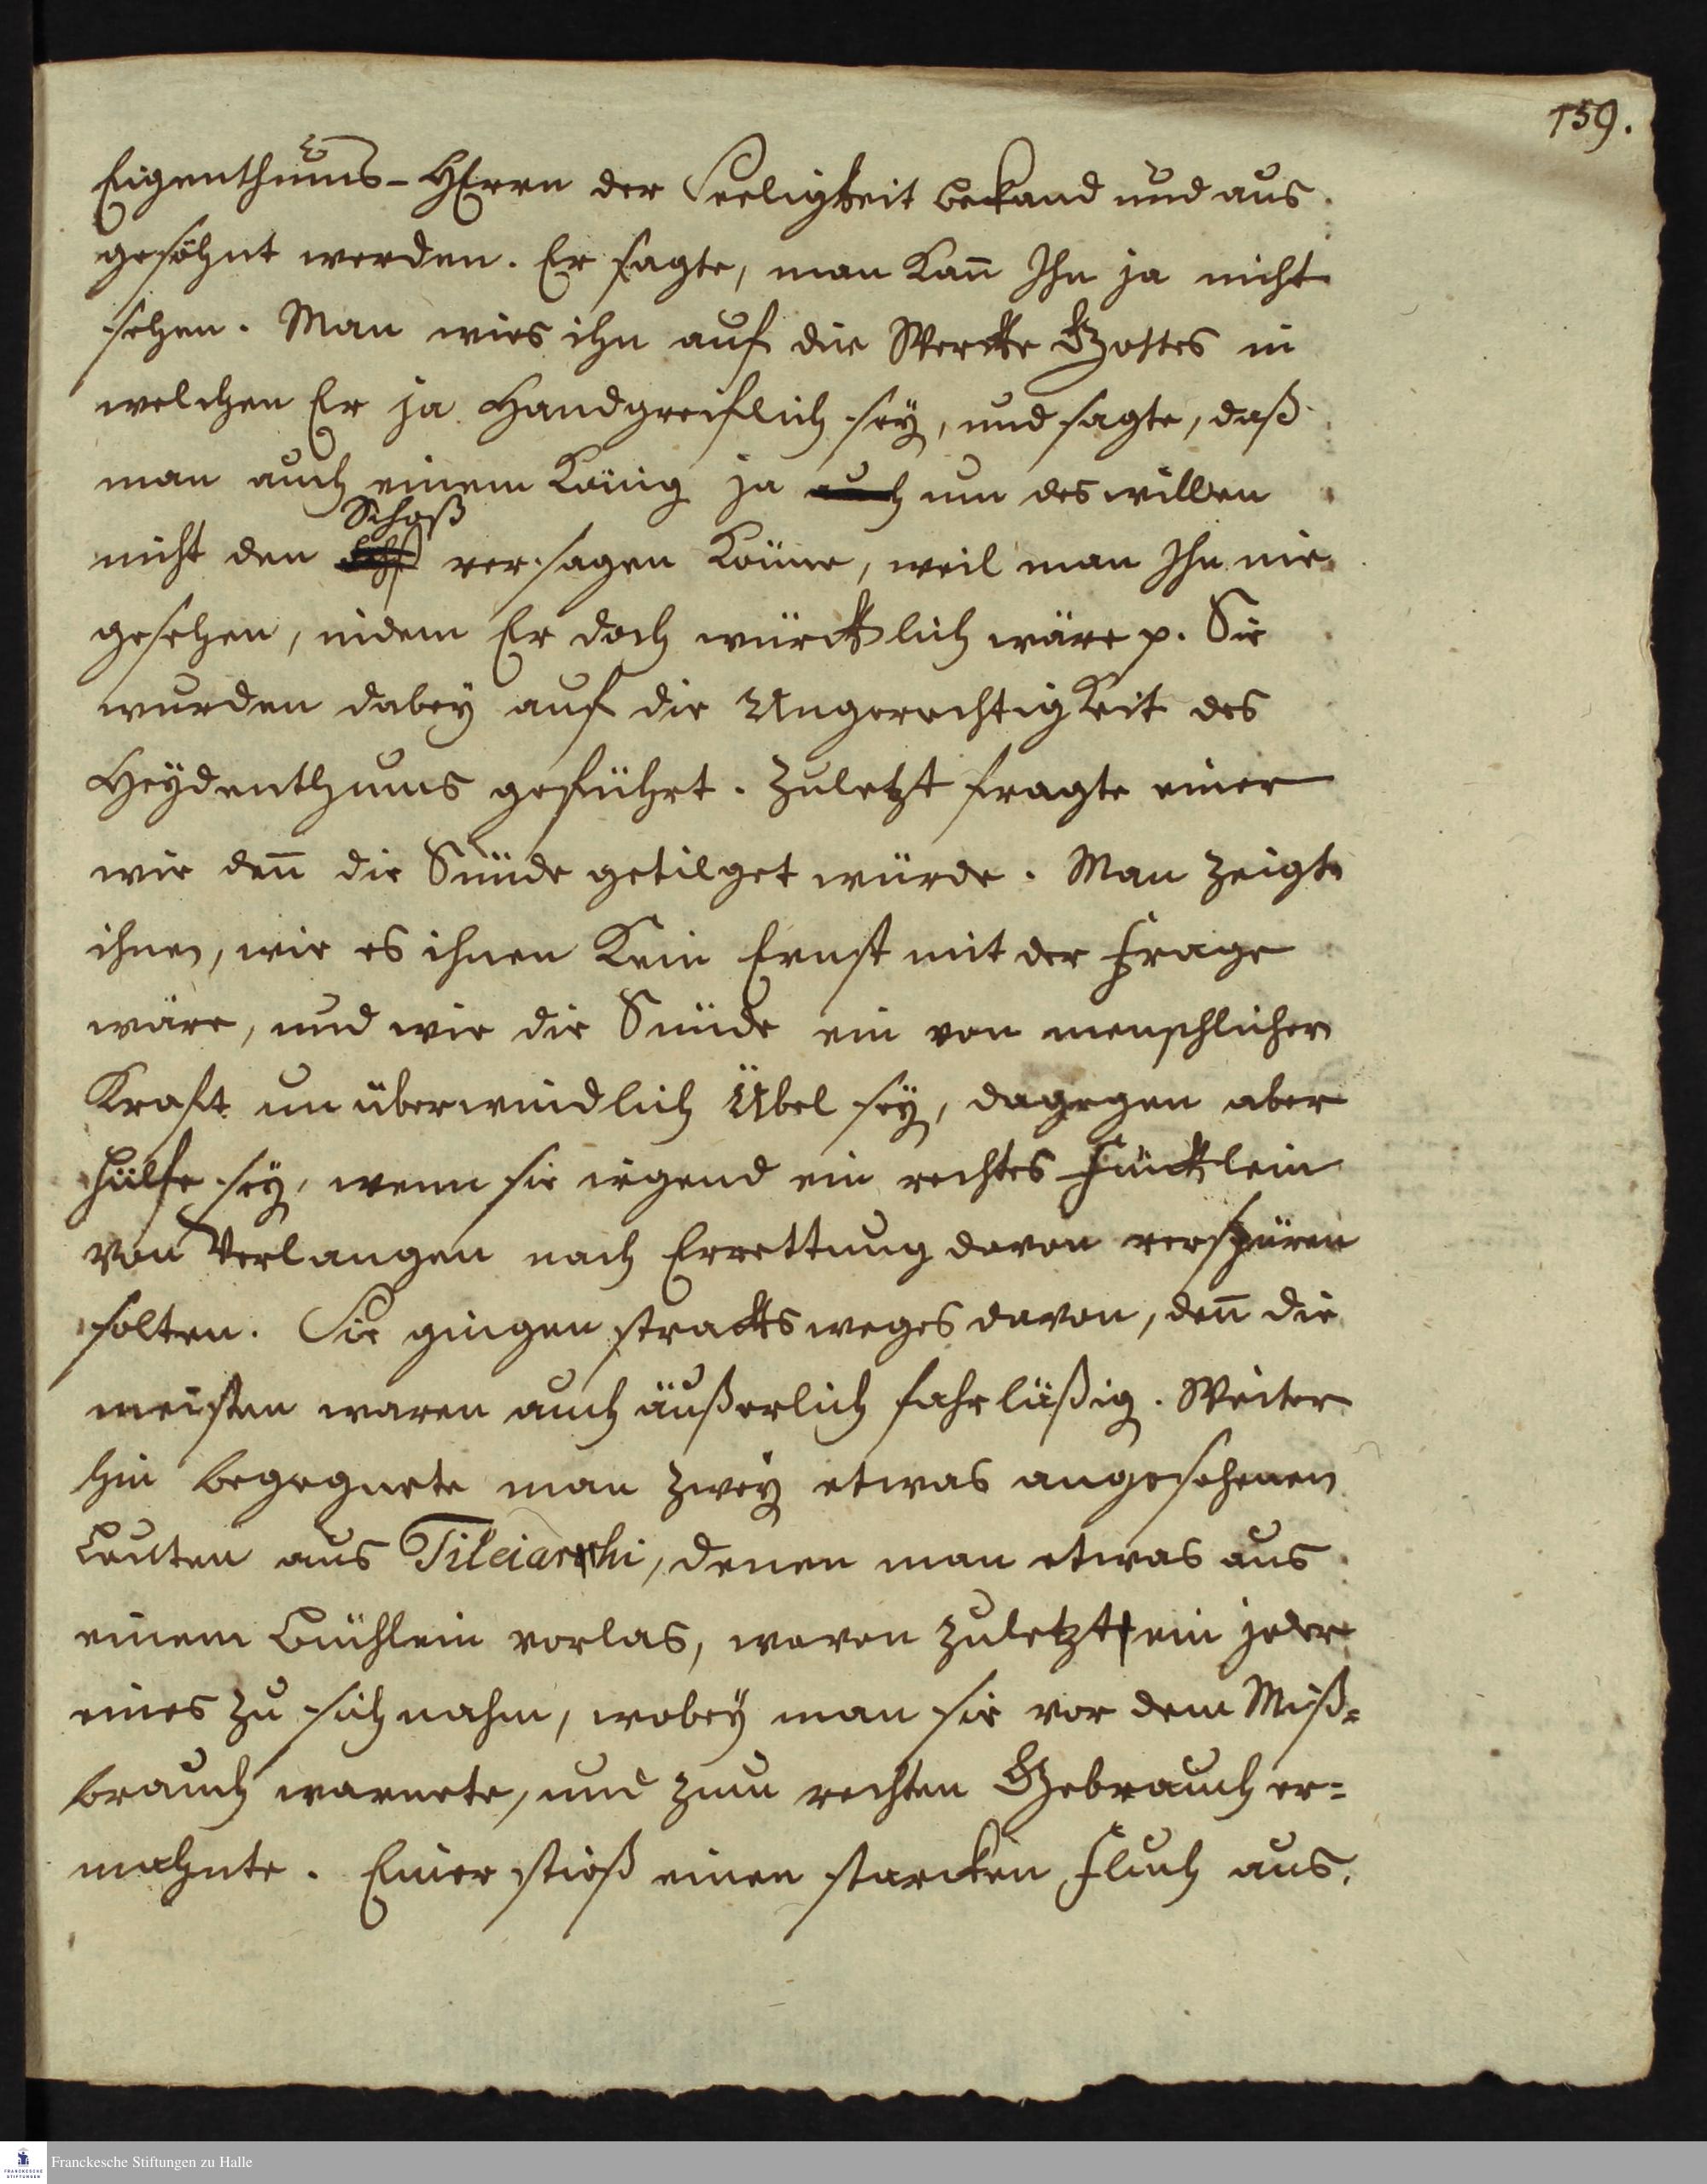 159.
Eigenthums-HErrn der Seeligkeit bekand und aus
gesöhnt werden. Er sagte, man kan̄ Ihn ja nicht
sehen. Man wies ihn auf die Wercke Gottes in
welchen Er ja Handgreiflich sey, und sagte, daß
man auch einem König ja auch um des willen
Schoß
nicht den versagen könne, weil man Ihn nie
gesehen, indem Er doch würcklich wäre p. Sie
wurden dabey auf die Ungerechtigkeit des
Heydenthums geführt. Zuletzt fragte einer
wie den̄ die Sünde getilget würde. Man zeigte
ihnen, wie es ihnen kein Ernst mit der Frage
wäre, und wie die Sünde ein von menschlicher
Kraft unüberwindlich Übel sey, dagegen aber
Hülfe sey, wenn sie irgend ein rechtes Füncklein
von Verlangen nach Errettung davon verspüren
solten. Sie gingen stracks weges davon, den̄ die
meisten waren auch äußerlich fahrläßig. Weiter
hin begegnete man zwey etwas angesehenen
Leuten aus denen man etwas aus
einem Büchlein vorlas, wovon zuletzt ein jeder
eines zu sich nahm, wobey man sie vor dem Miß-
brauch warnete, und zum rechten Gebrauch er-
mahnte. Einer stieß einen starcken Fluch aus,
Franckesche Stiftungen zu Halle
FRANCKESCHE
STIFTUNGEN